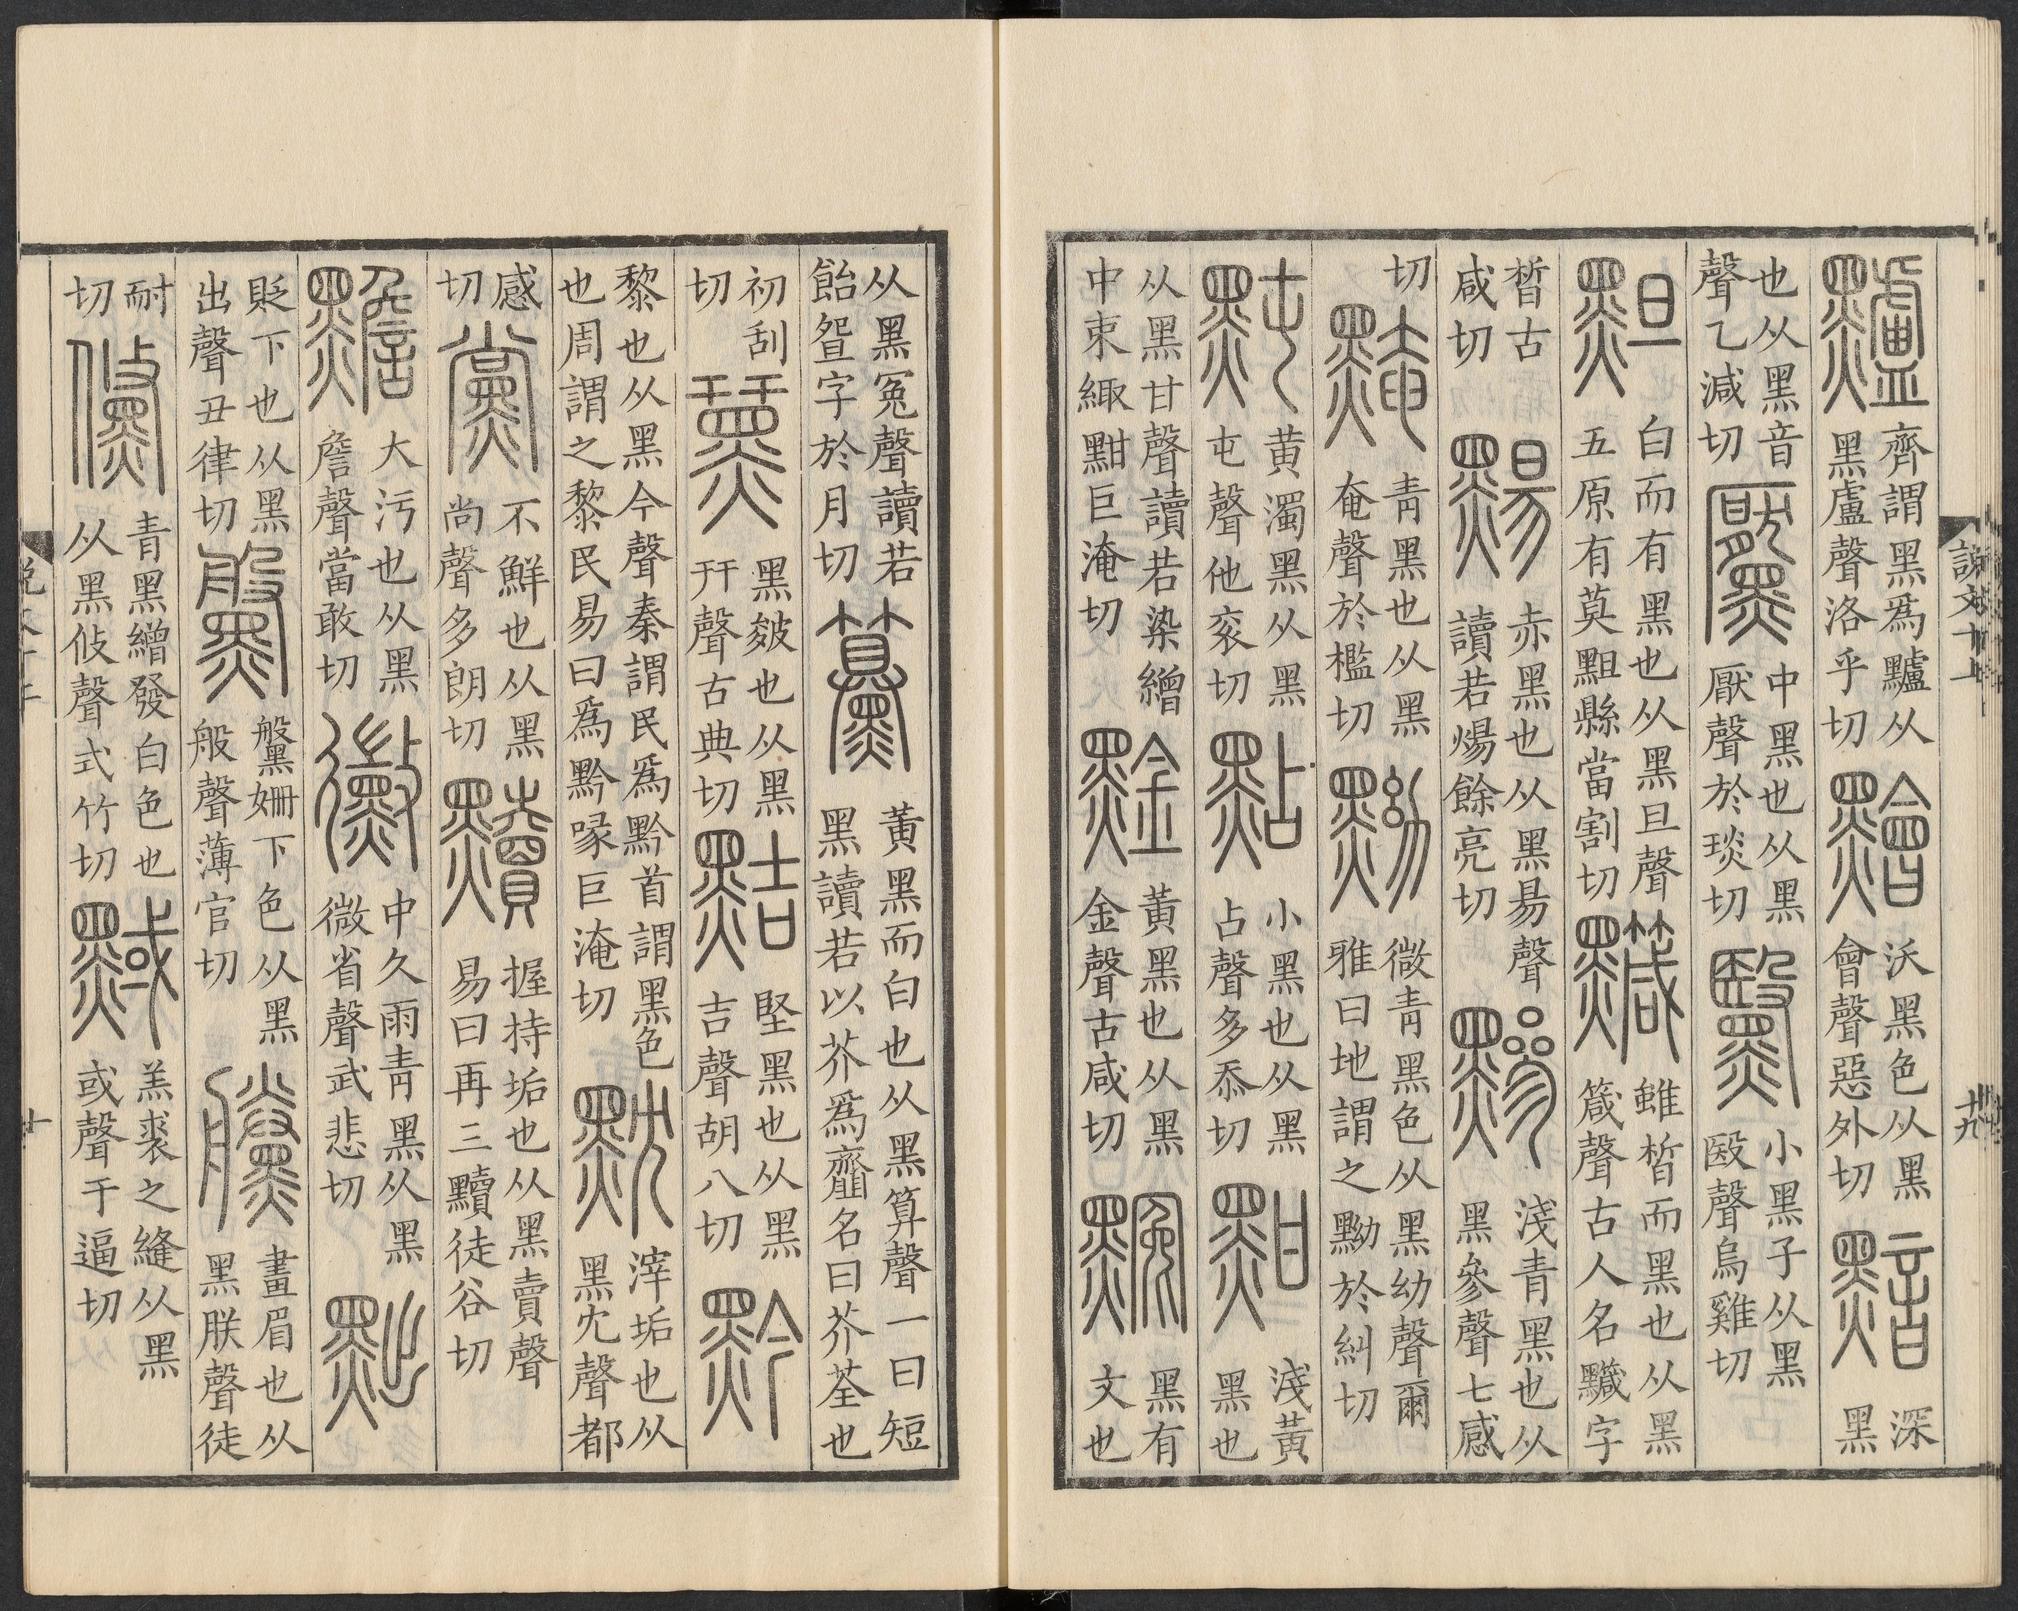 說文十上 十九
黸 齊謂黑爲驢从黑盧聲洛乎切 䵳 沃黑色从黑會聲惡外切 黯 深黑
也从黑音聲乙減切 黶 中黑也从黑厭聲於琰切 黳 小黑子从黑殹聲烏雞切
䵣 白而有黑也从黑旦聲五原有莫䵣縣當割切 雖皙而黑也从黑箴聲古人名字
皙古咸切 赤黑也从黑昜聲讀若煬餘亮切 黲 淺青黑也从黑參聲七感
切 黤 青黑也从黑奄聲於檻切 黝 微青黑色从黑幼聲爾雅曰地謂之黝於糾切
黗 黃濁黑从黑屯聲他衮切 點 小黑也从黑占聲多忝切 黚 淺黃黑也
从黑甘聲讀若染繒中束緅黚巨淹切 黅 黃黑也从黑金聲古咸切 黦 黑有文也
从黑冤聲讀若飴䀂字於月切 黃黑而白也从黑算聲一曰短黑讀若以芥爲齏名曰芥荃也
初刮切 黑皴也从黑幵聲古典切 黠 堅黑也从黑吉聲胡八切 黔
黎也从黑今聲秦謂民爲黔首謂黑色也周謂之黎民易曰爲黔喙巨淹切 黕 滓垢也从黑冘聲都
感切 黨 不鮮也从黑尚聲多朗切 黷 握持垢也从黑賣聲易曰再三黷徒谷切
黵 大污也从黑詹聲當敢切 黴 中久雨青黑从黑微省聲武悲切 黜
貶下也从黑出聲丑律切 䰉 䰉姍下色从黑般聲薄官切 黱 畫眉也从黑朕聲徒
耐切 儵 青黑繒發白色也从黑攸聲式竹切 黬 羔裘之縫从黑或聲于逼切